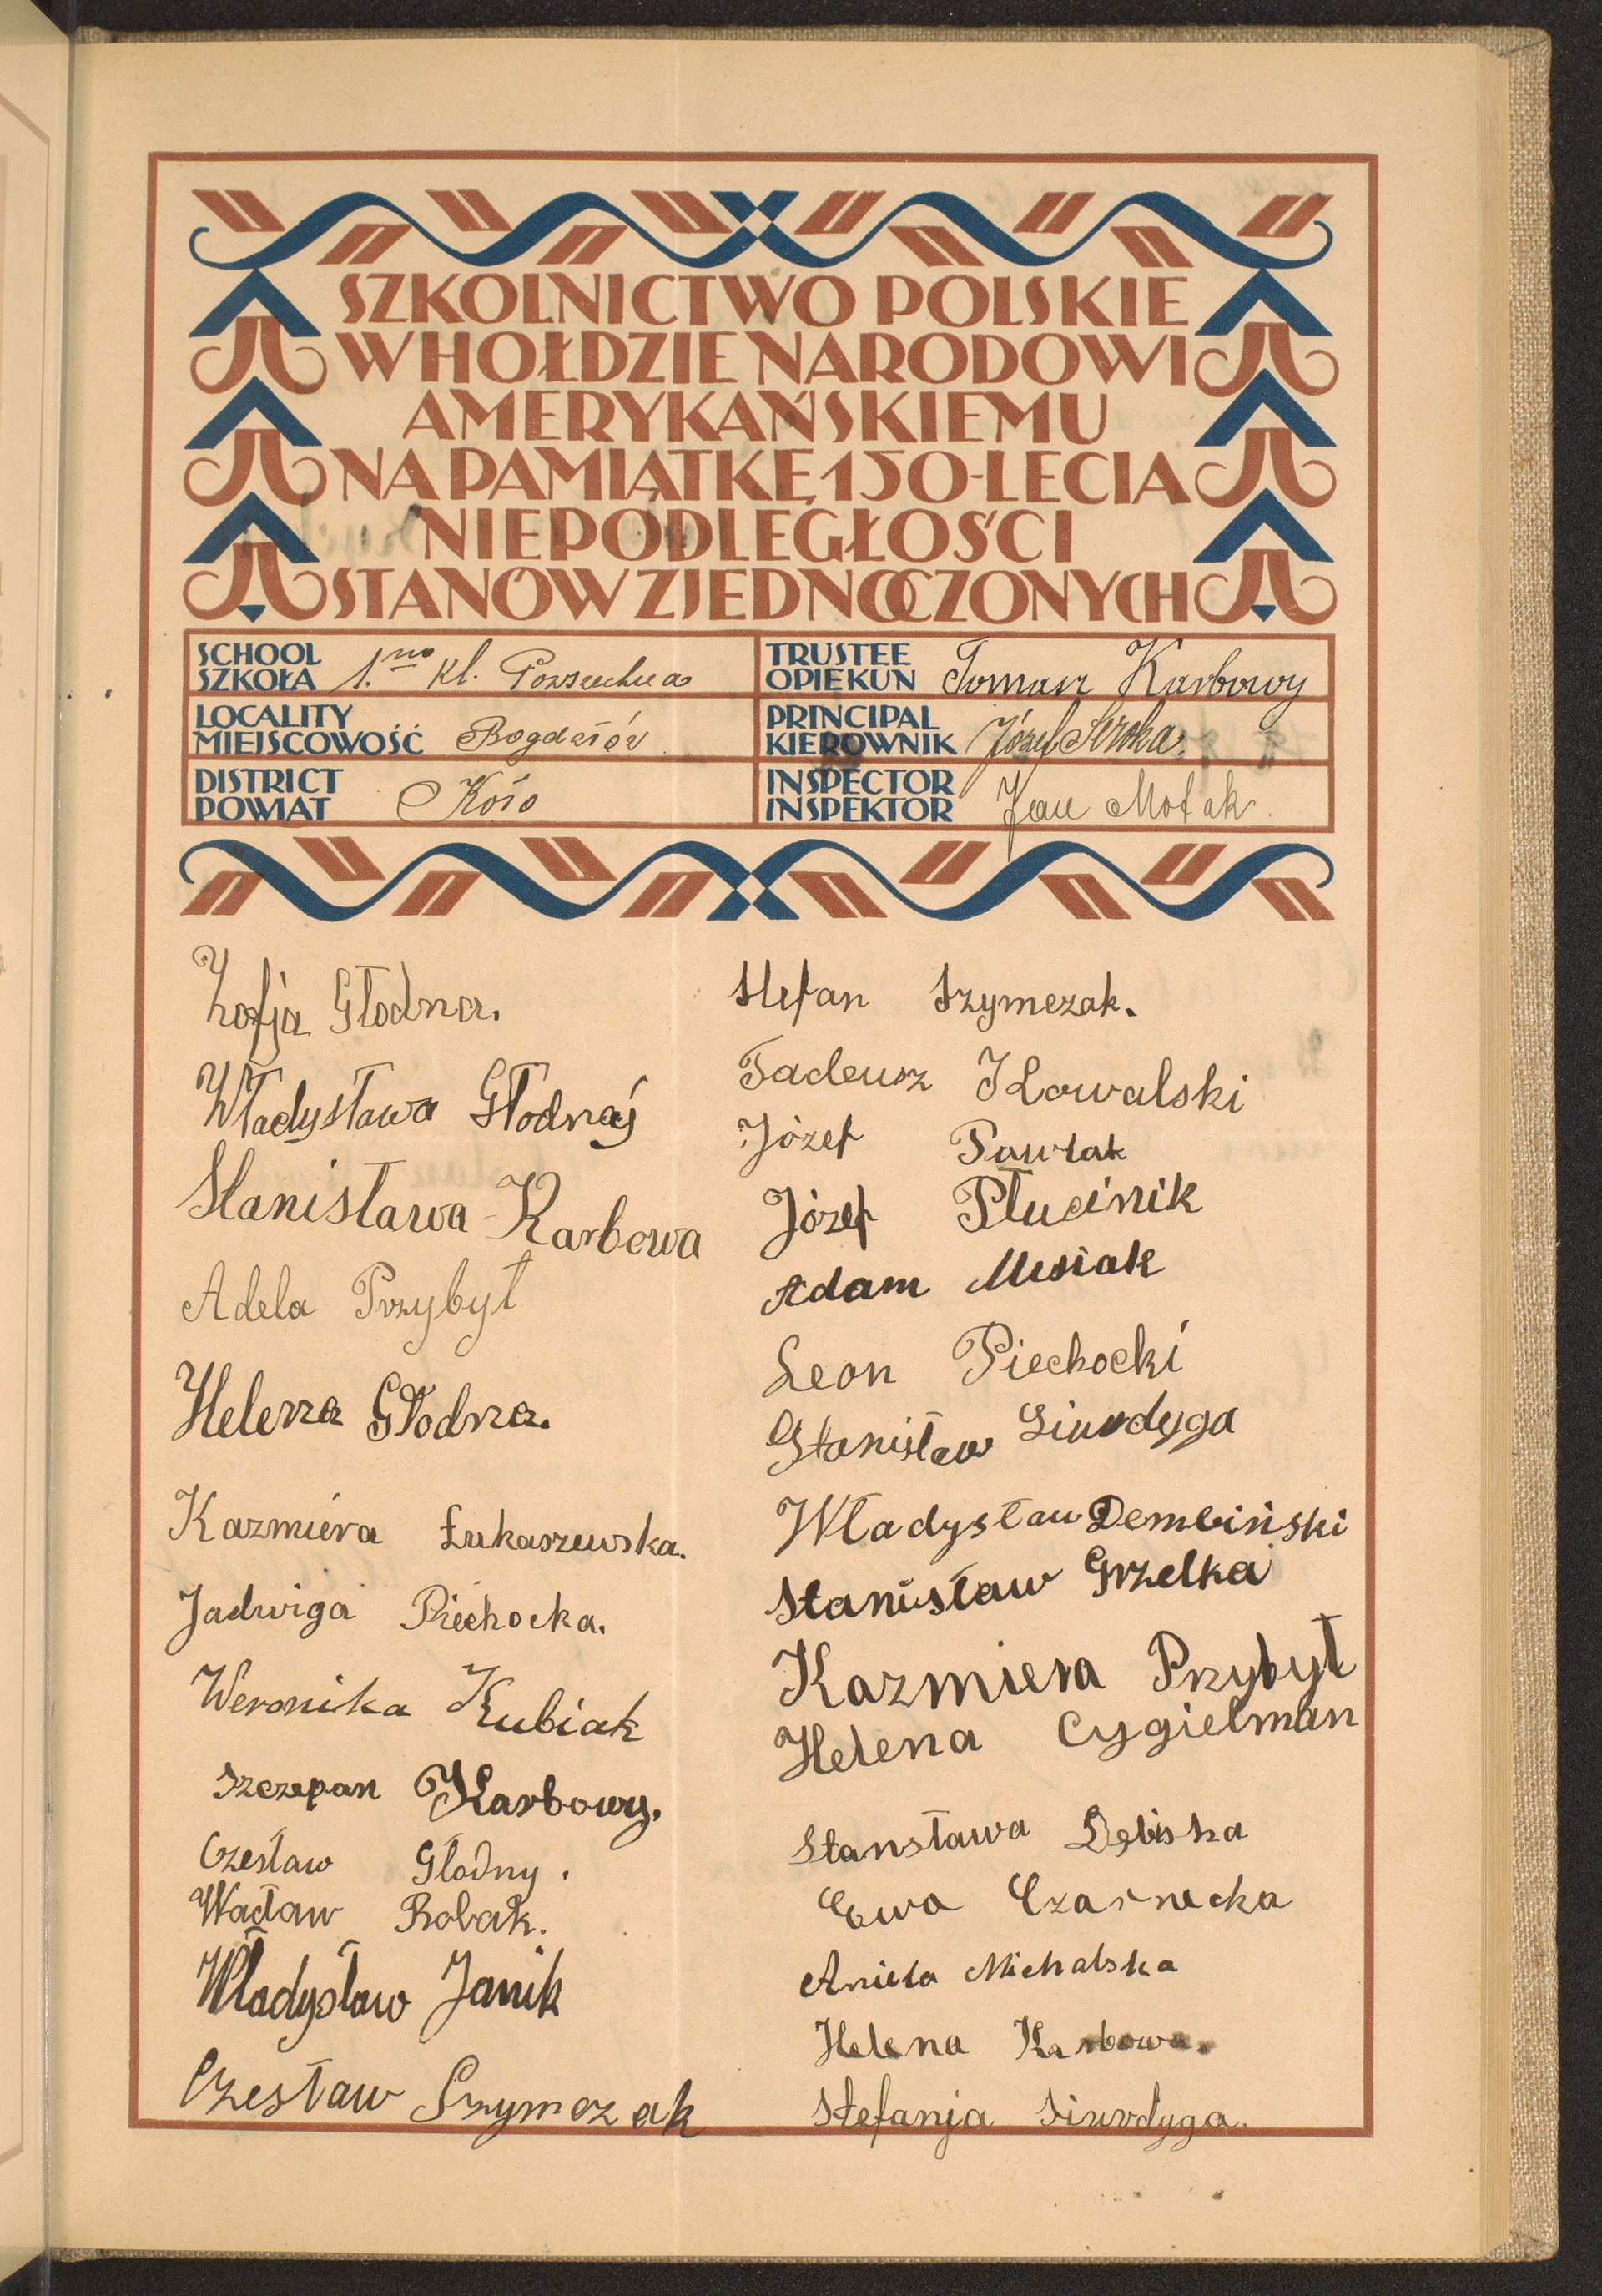 SZKOLNICTWO POLSKIE
W HOŁDZIE NARODOWI
AMERYKAŃSKIEMU
NA PAMIĄTKĘ 150-LECIA
NIEPODLEGŁOŚCI
STANÓW ZJEDNOCZONYCH
SCHOOL
SZKOŁA 1.no kl. Powszechna
TRUSTEE
OPIEKUN Tomasz Karbowy
LOCALITY
MIEJSCOWOŚĆ Bogdałów
PRINCIPAL
KIEROWNIK Józef Sroka.
DISTRICT
POWIAT Koło
INSPECTOR
INSPEKTOR Jan Motak.
Zofja Głodna.
Władysława Głodnaj
Stanisława Karbowa
Adela Przybył
Helena Głodna.
Kazmiera Łukaszewska.
Jadwiga Piechocka.
Weronika Kubiak
Szczepan Karbowy.
Czesław Głodny.
Wacław Robak.
Władysław Janik
Czesław Szymczak
Stefan Szymczak.
Tadeusz Kowalski
Józef Pawlak
Józef Płucinik
Adam Misiak
Leon Piechocki
Stanisław Siwrdyga
Władysław Dembiński
Stanisław Grzelka
Kazmiera Przybył
Helena Cygielman
Stansława Dębiska
Ewa Czarnecka
Aniela Michalska
Helena Karbowa.
Stefanja Siwrdyga.